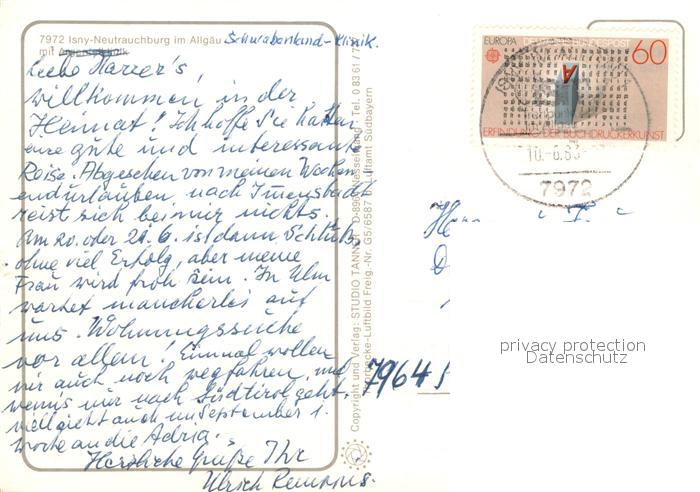 7972 Isny-Neutrauchburg im Allgäu Schwabenland-Klinik.
mit
Liebe Harrer's,
willkommen in der
Heimat! Ich hoffe Sie hatten
eine gute und interessante
Reise. Abgesehen von meinen Wochen-
endurlauben nach Immenstadt
reist sich bei mir nichts.
Am 20. oder 21.6. ist dann Schluß,
ohne viel Erfolg, aber meine
Frau wird froh sein. In Ulm
wartet mancherlei auf
uns. Wohnungssuche
vor allem! Einmal wollen
wir auch noch wegfahren, und
wenn's nur nach Südtirol geht,
vielleicht auch im September 1
Woche an die Adria.
Herzliche Grüße Ihr
Ulrich
Copyright und Verlag: STUDIO TANNER
Tel. 0 83 61 /
-Luftbild Freig.-Nr. G5/6587 Luftamt Südbayern
EUROPA DEUTSCHE BUNDESPOST 60
A
ERFINDUNG DER BUCHDRUCKERKUNST
10.-6.83
7972
7964
privacy protection
Datenschutz